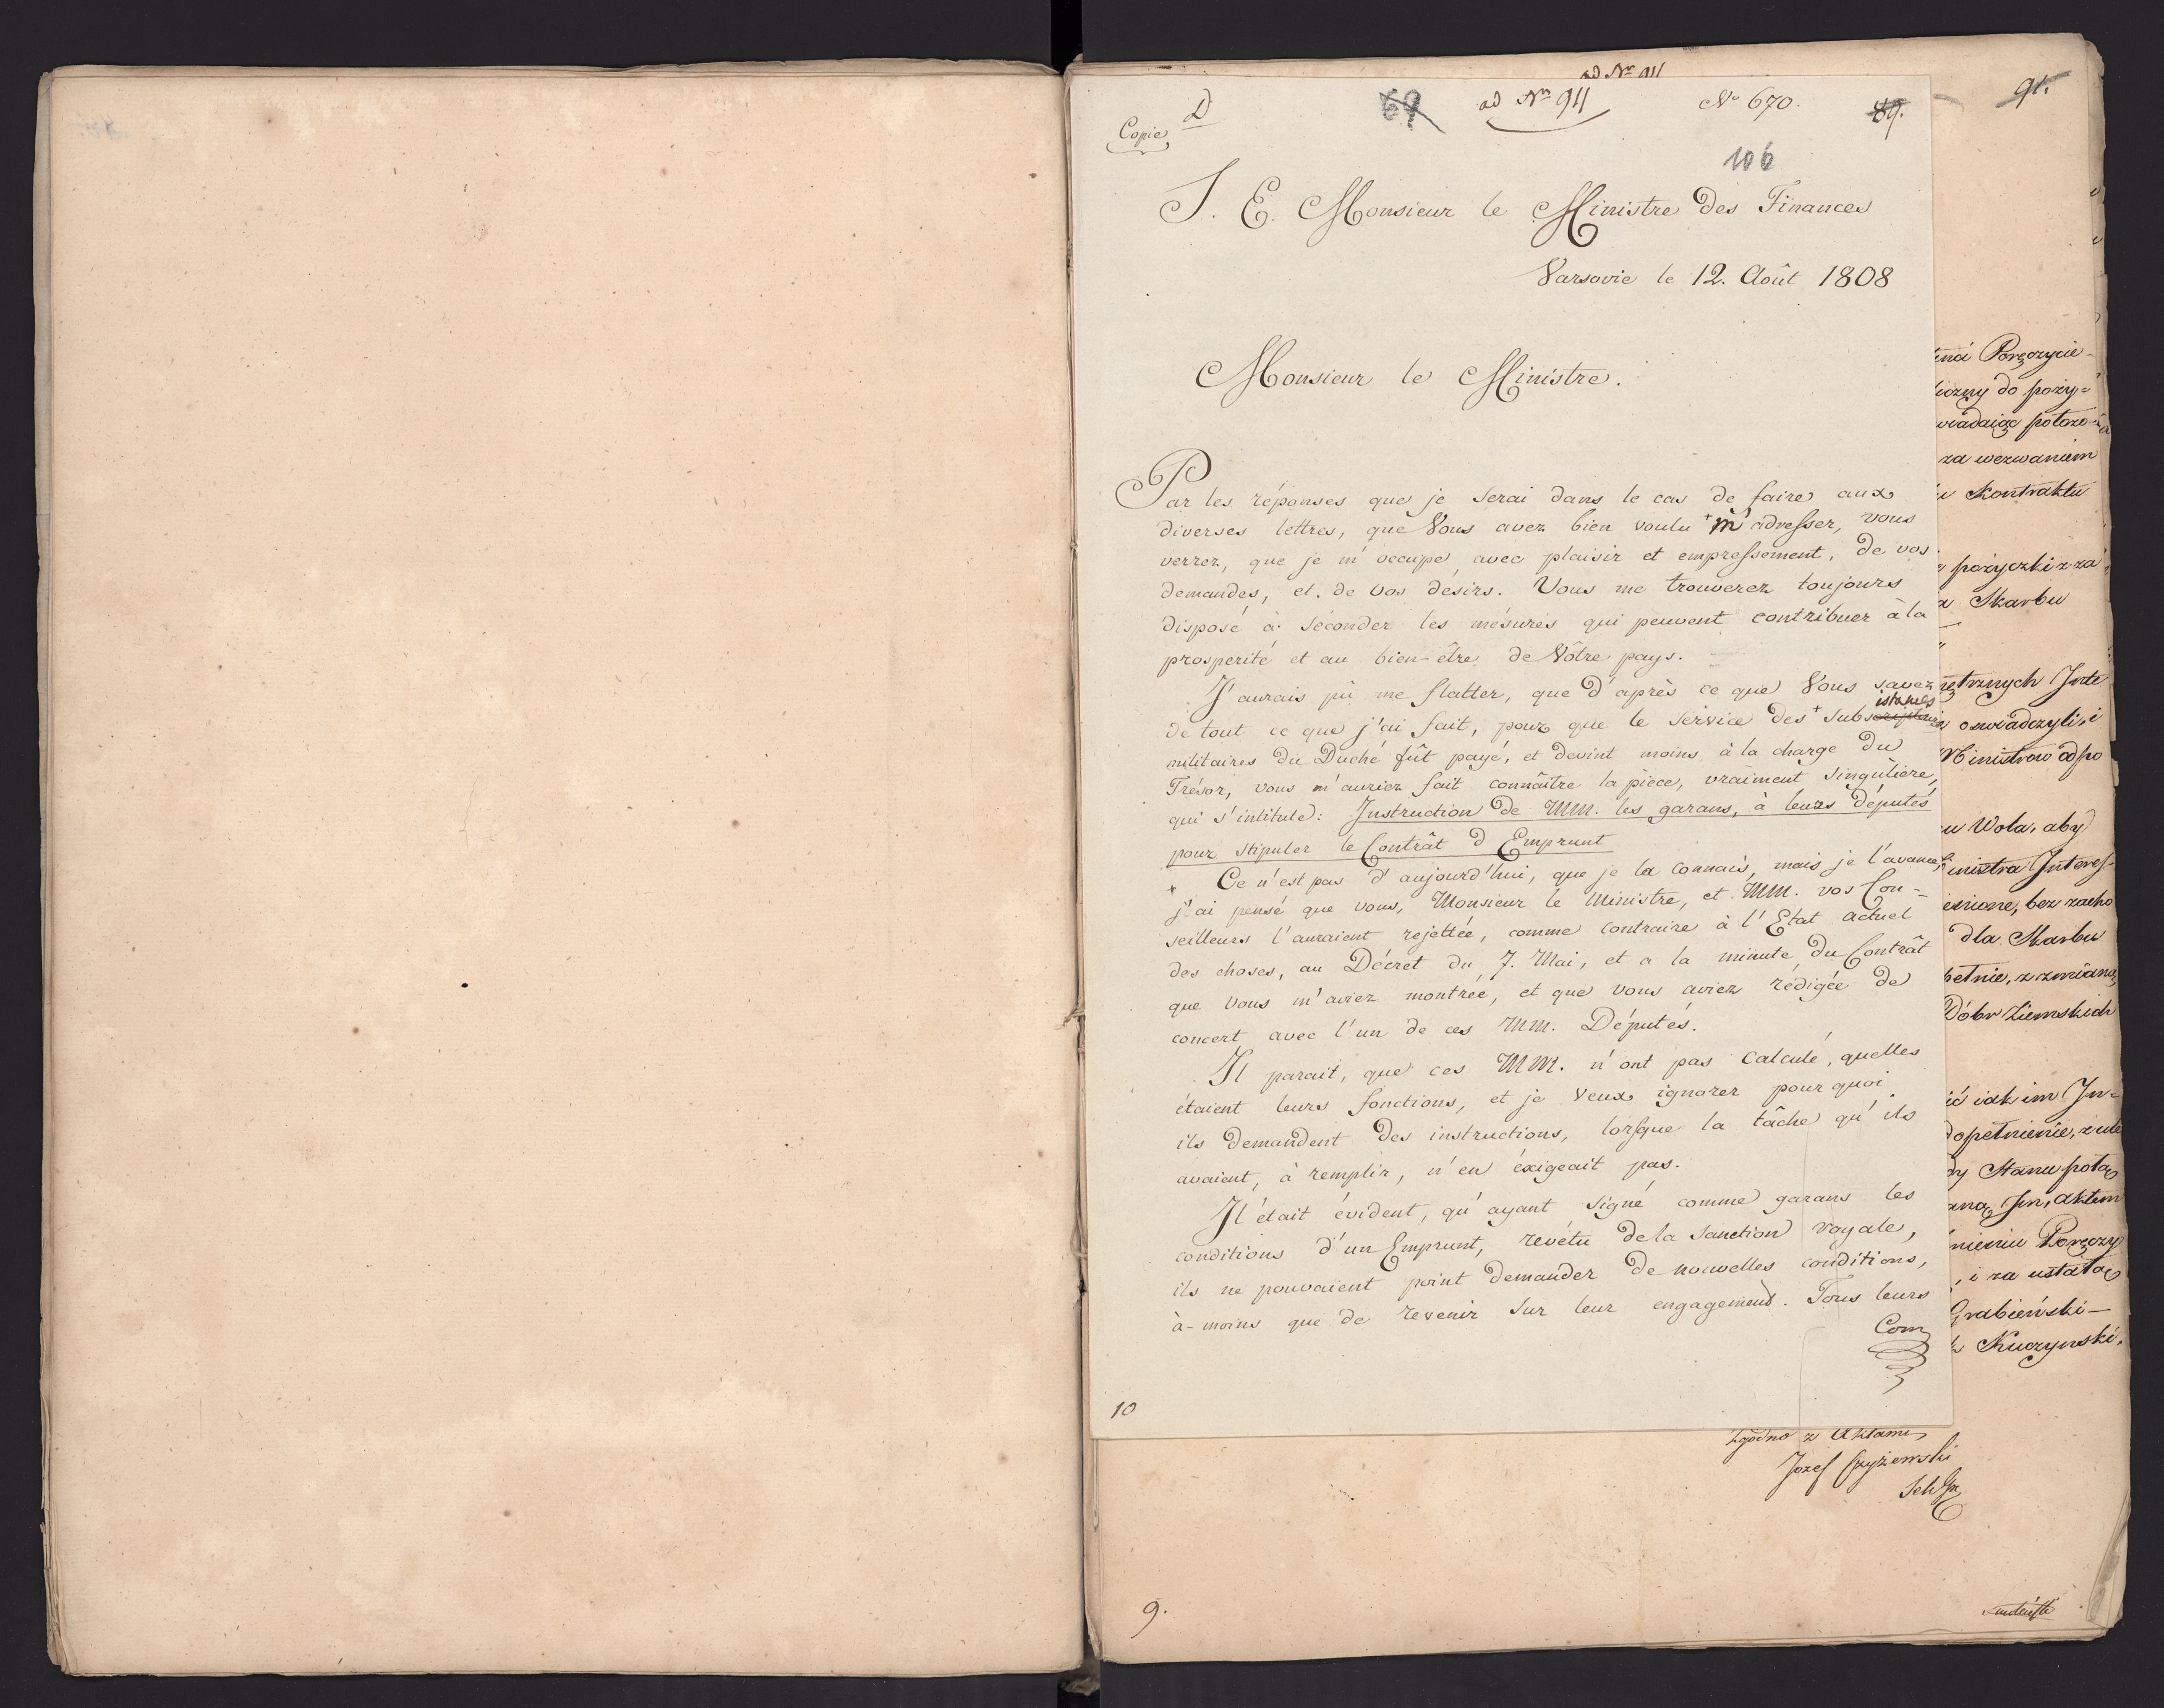 ad Nro 911
91.
D
Copie
69
ad Nro 911
No 670.
89.
106
S. E. Monsieur le Ministre des Finances
Varsovie le 12. Août 1808
Monsieur le Ministre.
Par les réponses que je serai dans le cas de faire aux
diverses lettres, que Vous avez bien voulu + m'adresser, vous
verrez, que je m'occupe avec plaisir et empressement, de vos
demandes, et de vos désirs. Vous me trouverez toujours
disposé à séconder les mésures qui peuvent contribuer à la
prosperité et au bien-être de Vôtre pays.
J'aurais pû me flatter, que d'après ce que Vous savez
de tout ce que j'ai fait, pour que le service des + subsistances
militaires du Duché fût payé, et devint moins à la charge du
Trésor, vous m'auriez fait connaître la pièce, vraiment singulière,
qui s'intitule: Instruction de MM. les garans, à leurs députés
pour stipuler le Contrât d'Emprunt
+ Ce n'est pas d'aujourd'hui, que je la connais, mais je l'avance,
j'ai pensé que vous, Monsieur le Ministre, et MM. vos Con-
seillers l'auraient rejettée, comme contraire à l'Etat actuel
des choses, au Décret du 7. Mai, et a la minute du Contrât
que vous m'aviez montrée, et que vous aviez rédigée de
concert avec l'un de ces MM. Députés.
Il parait, que ces MM. n'ont pas calculé, quelles
étaient leurs fonctions, et je veux ignorer pourquoi
ils demandent des instructions, lorsque la tâche qu'ils
avaient, à remplir, n'en éxigeait pas.
Il était évident, qu'ayant signé comme garans les
conditions d'un Emprunt, revétu de la Sanction royale,
ils ne pouvaient point demander de nouvelles conditions,
à-moins que de revenir sur leur engagement. Tous leurs
Com
10
Poręczycie-
iczny do poży-
wiadaiąc położo-
za wezwaniem
Kontraktu
pożyczki z za
Skarbu
ętrznych Inte
oswiadczyli, i
Ministrow odpo
Wola, aby
inistra Interes-
esione, bez zacho
dla Skarbu
pełnie, z zmianą
Dóbr Ziemskich
ić iak im In-
dopełnienie, z ule
dy Stanu połą
aną Jm, aktem
nieniu Poręczy
, i za ustałą
Grabieński-
Kuczynski.
Zgodno z Aktami
Jozef Czyżewski
9.